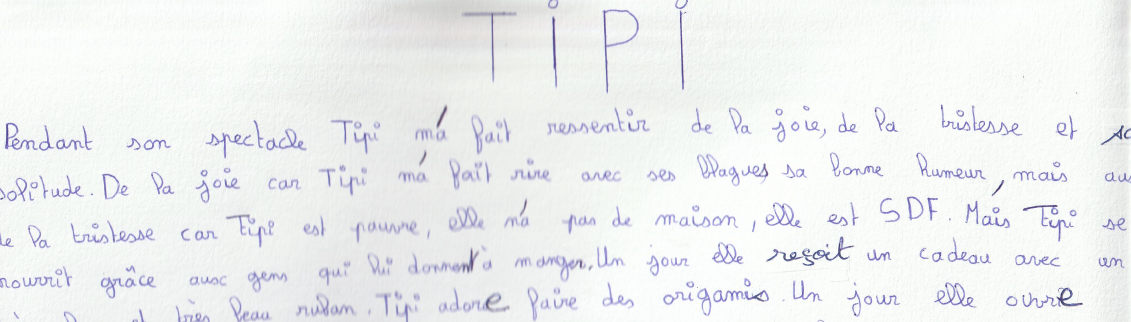 TiPi
Pendant son spectacle Tipi m'a fait ressentir de la joie, de la tristesse et
solitude. De la joie car Tipi m'a fait rire avec ses blagues sa bonne humeur, mais aus
de la tristesse car Tipi est pauvre, elle n'a pas de maison, elle est SDF. Mais Tipi se
nourrit grâce aux gens qui lui donnent à manger. Un jour elle reçoit un cadeau avec un
très beau ruban. Tipi adore faire des origamis. Un jour elle ouvre